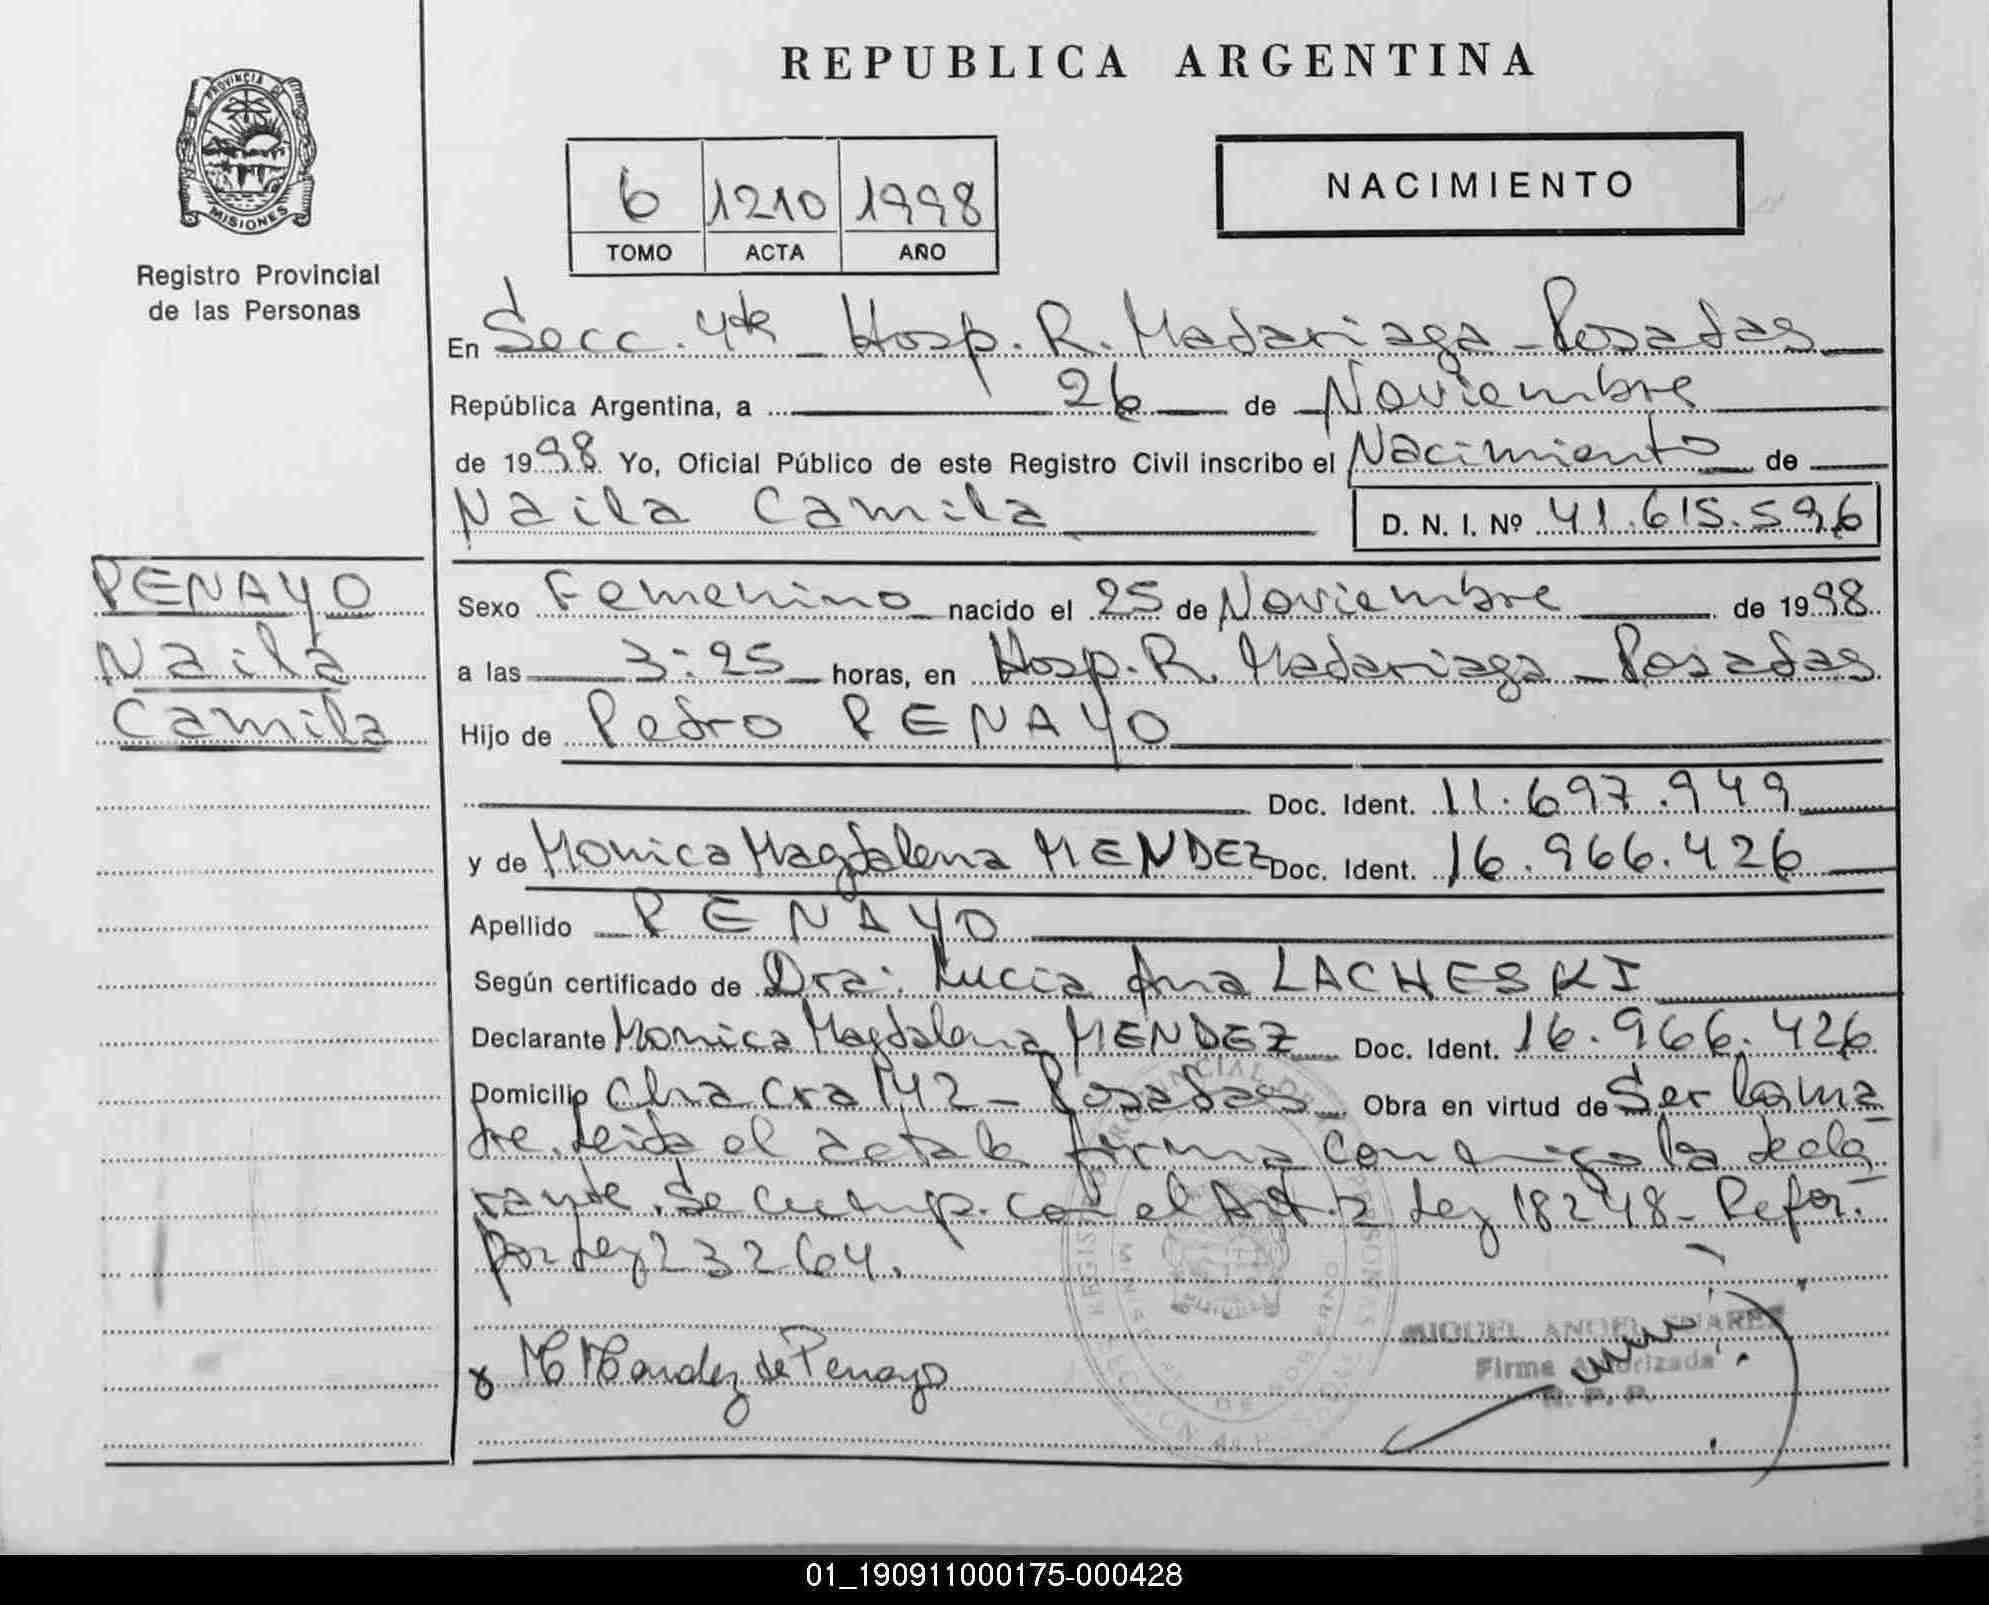 REPUBLICA ARGENTINA
PROVINCIA DE
MISIONES
Registro Provincial
de las Personas
6 1210 1998
TOMO ACTA AÑO
NACIMIENTO
En Secc. 4ta Hosp. R. Madariaga - Posadas
República Argentina, a 26 de Noviembre
de 1998 Yo, Oficial Público de este Registro Civil inscribo el Nacimiento de
Naila Camila D. N. I. Nº 41.615.596
PENAYO
Naila
Camila
Sexo Femenino nacido el 25 de Noviembre de 1998
a las 3:25 horas, en Hosp. R. Madariaga - Posadas
Hijo de Pedro PENAYO
Doc. Ident. 11.697.949
y de Monica Magdalena MENDEZ Doc. Ident. 16.966.426
Apellido PENAYO
Según certificado de Dra. Lucia Ana LACHESKI
Declarante Monica Magdalena MENDEZ Doc. Ident. 16.966.426
Domicilio Chacra 142 - Posadas Obra en virtud de Ser la ma
dre. Leida el acta la firma conmigo la decla
rante. Se cump. con el Art. 2 Ley 18248 - Refor.
por Ley 23264.
M Mendez de Penayo
MIGUEL ANGEL SUAREZ
Firma Autorizada
R. P. P.
01_190911000175-000428